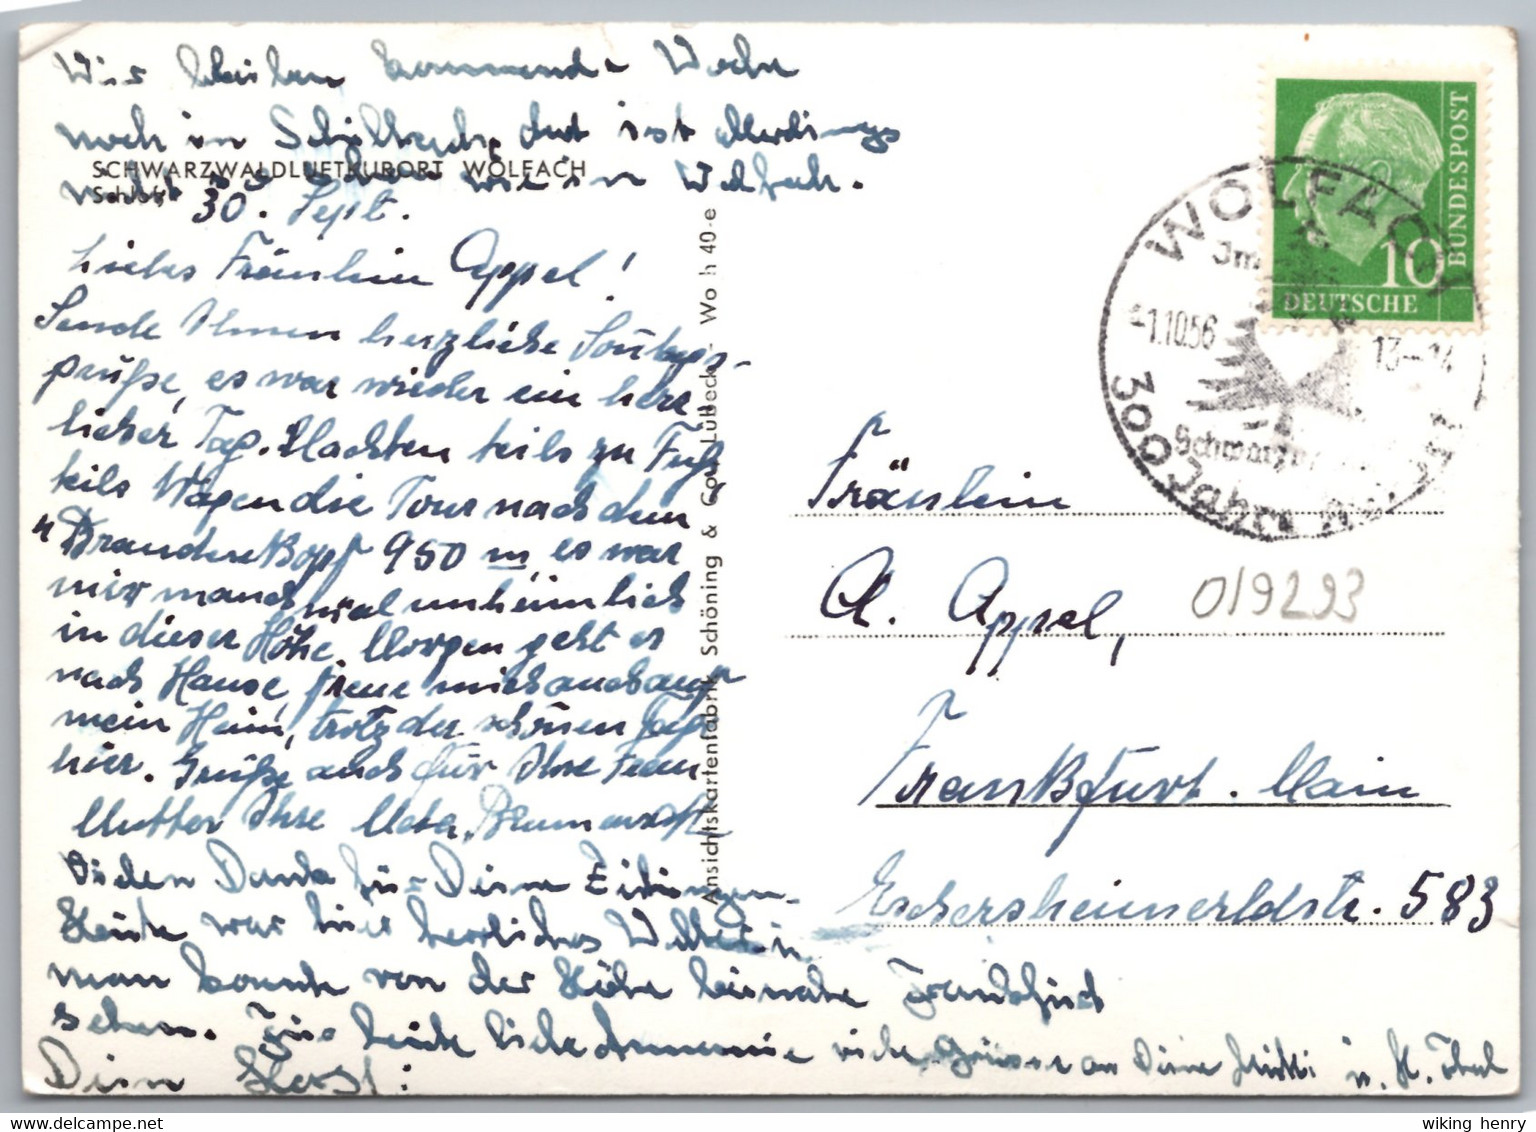 Wir bleiben kommende Woche
noch in Schiltach, dort ist allerdings
nicht so schön wie in Wolfach.
SCHWARZWALDLUFTKURORT WOLFACH
Schloß
30. Sept.
Liebes Fräulein Appel!
Sende Ihnen herzliche Sontags-
grüße, es war wieder ein herr-
licher Tag. Machten teils zu Fuß,
teils Wagen die Tour nach dem
"Brandenkopf 950 m es war
mir manchmal unheimlich
in dieser Höhe. Morgen geht es
nach Hause, freue mich auch auf
mein Heim, trotz der schönen Tage
hier. Grüße auch für Ihre Frau
Mutter Ihre Meta
Vielen Dank für Deine Zeitungen.
Heute war hier herrliches Wetter
man konnte von der Höhe beinahe Frankfurt
sehen. Für heute liebe Annemie viele Grüsse an Deine Mutti u.
Dein Horst:
Ansichtskartenfabrik Schöning & Co., Lübeck - Wo h 40-e
DEUTSCHE BUNDESPOST
10
WOLFACH
Im
-1.10.56
13-14
Schwarzw
300 Jahre
Fräulein
A. Appel,
019293
Frankfurt. Main
Eschersheimerldstr. 583
wiking henry